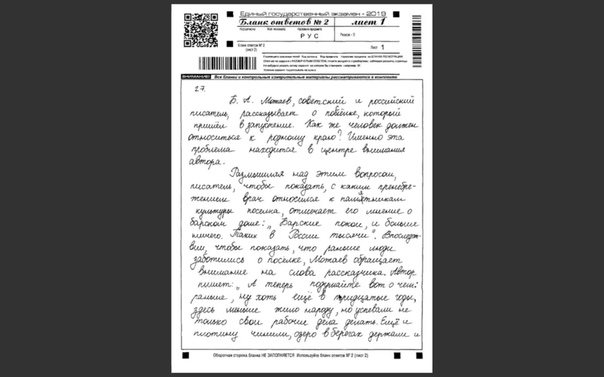 Единый государственный экзамен - 2019
Бланк ответов № 2 лист 1
РУС
Бланк ответов № 2
(лист 2)
Лист 1
ВНИМАНИЕ! Все бланки и контрольные измерительные материалы рассматриваются в комплекте
27.
Б. А. Можаев, советский и российский
писатель, рассказывает о посёлке, который
пришёл в запустение. Как же человек должен
относиться к родному краю? Именно эта
проблема находится в центре внимания
автора.
Размышляя над этим вопросом,
писатель, чтобы показать, с каким пренебре-
жением врач относился к памятникам
культуры поселка, отмечает его мнение о
барском доме: „Барские покои, и больше
ничего. Таких в России тысячи". Впоследст-
вии, чтобы показать, что раньше люди
заботились о посёлке, Можаев обращает
внимание на слова рассказчика. Автор
пишет: „А теперь подумайте вот о чём:
раньше, ну хоть ещё в тридцатые годы,
здесь меньше жило народу, но успевали не
только свои рабочие дела делать. Ещё и
плотину чинили, озеро в берегах держали и
Оборотная сторона бланка НЕ ЗАПОЛНЯЕТСЯ. Используйте бланк ответов № 2 (лист 2)